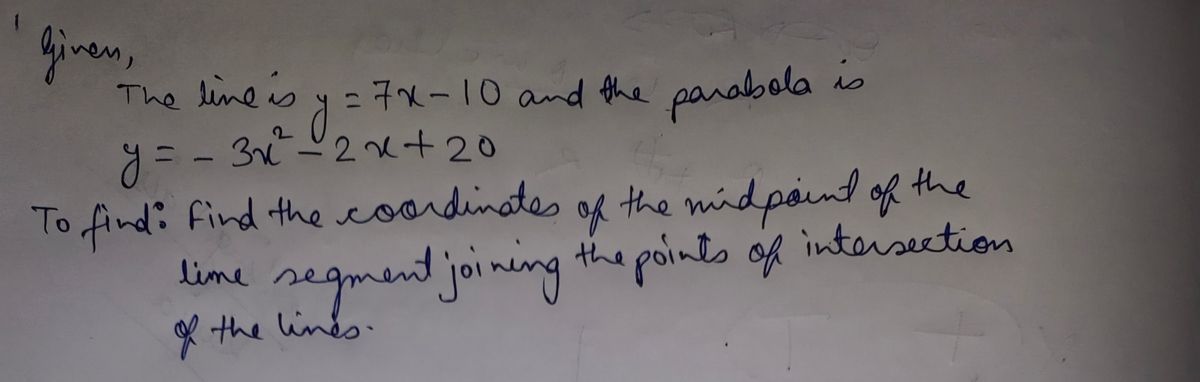 Given,
The line is y = 7x - 10 and the parabola is
y = - 3x² - 2x + 20
To find: Find the coordinates of the midpoint of the
line segment joining the points of intersection
of the lines.